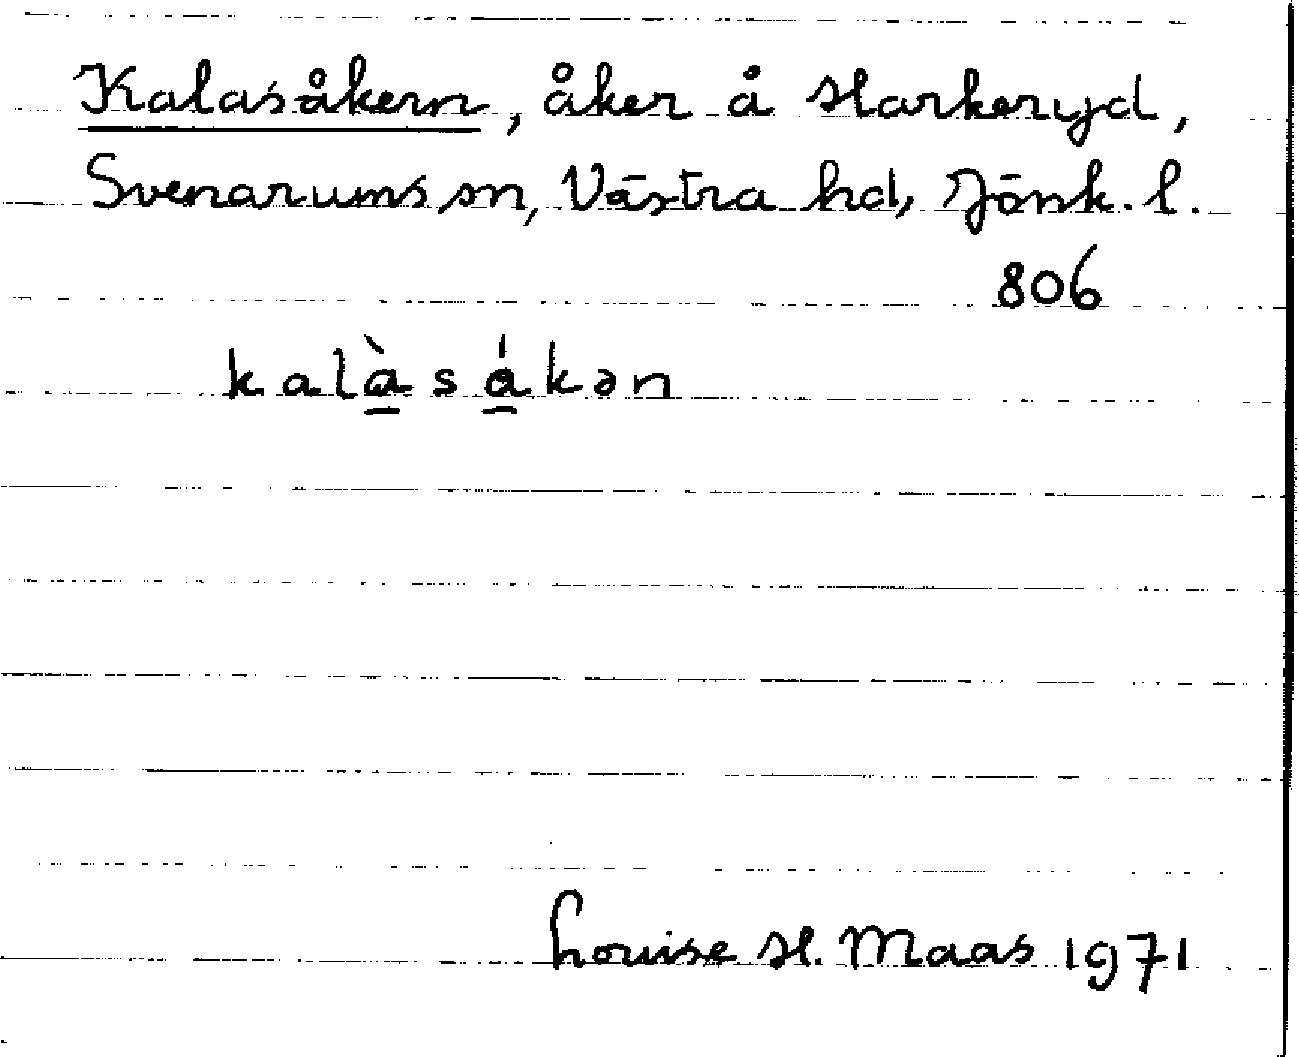 Kalasåkern, åker å Harkeryd,
Svenarums sn, Västra hd, Jönk. l.
806
kalàsákən
Louise H. Maas 1971